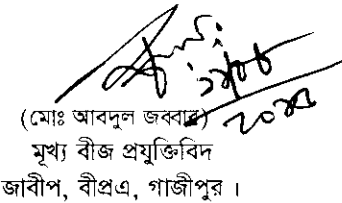 (মোঃ আবদুল জব্বার)
মূখ্য বীজ প্রযুক্তিবিদ
জাবীপ, বীপ্রএ, গাজীপুর ।